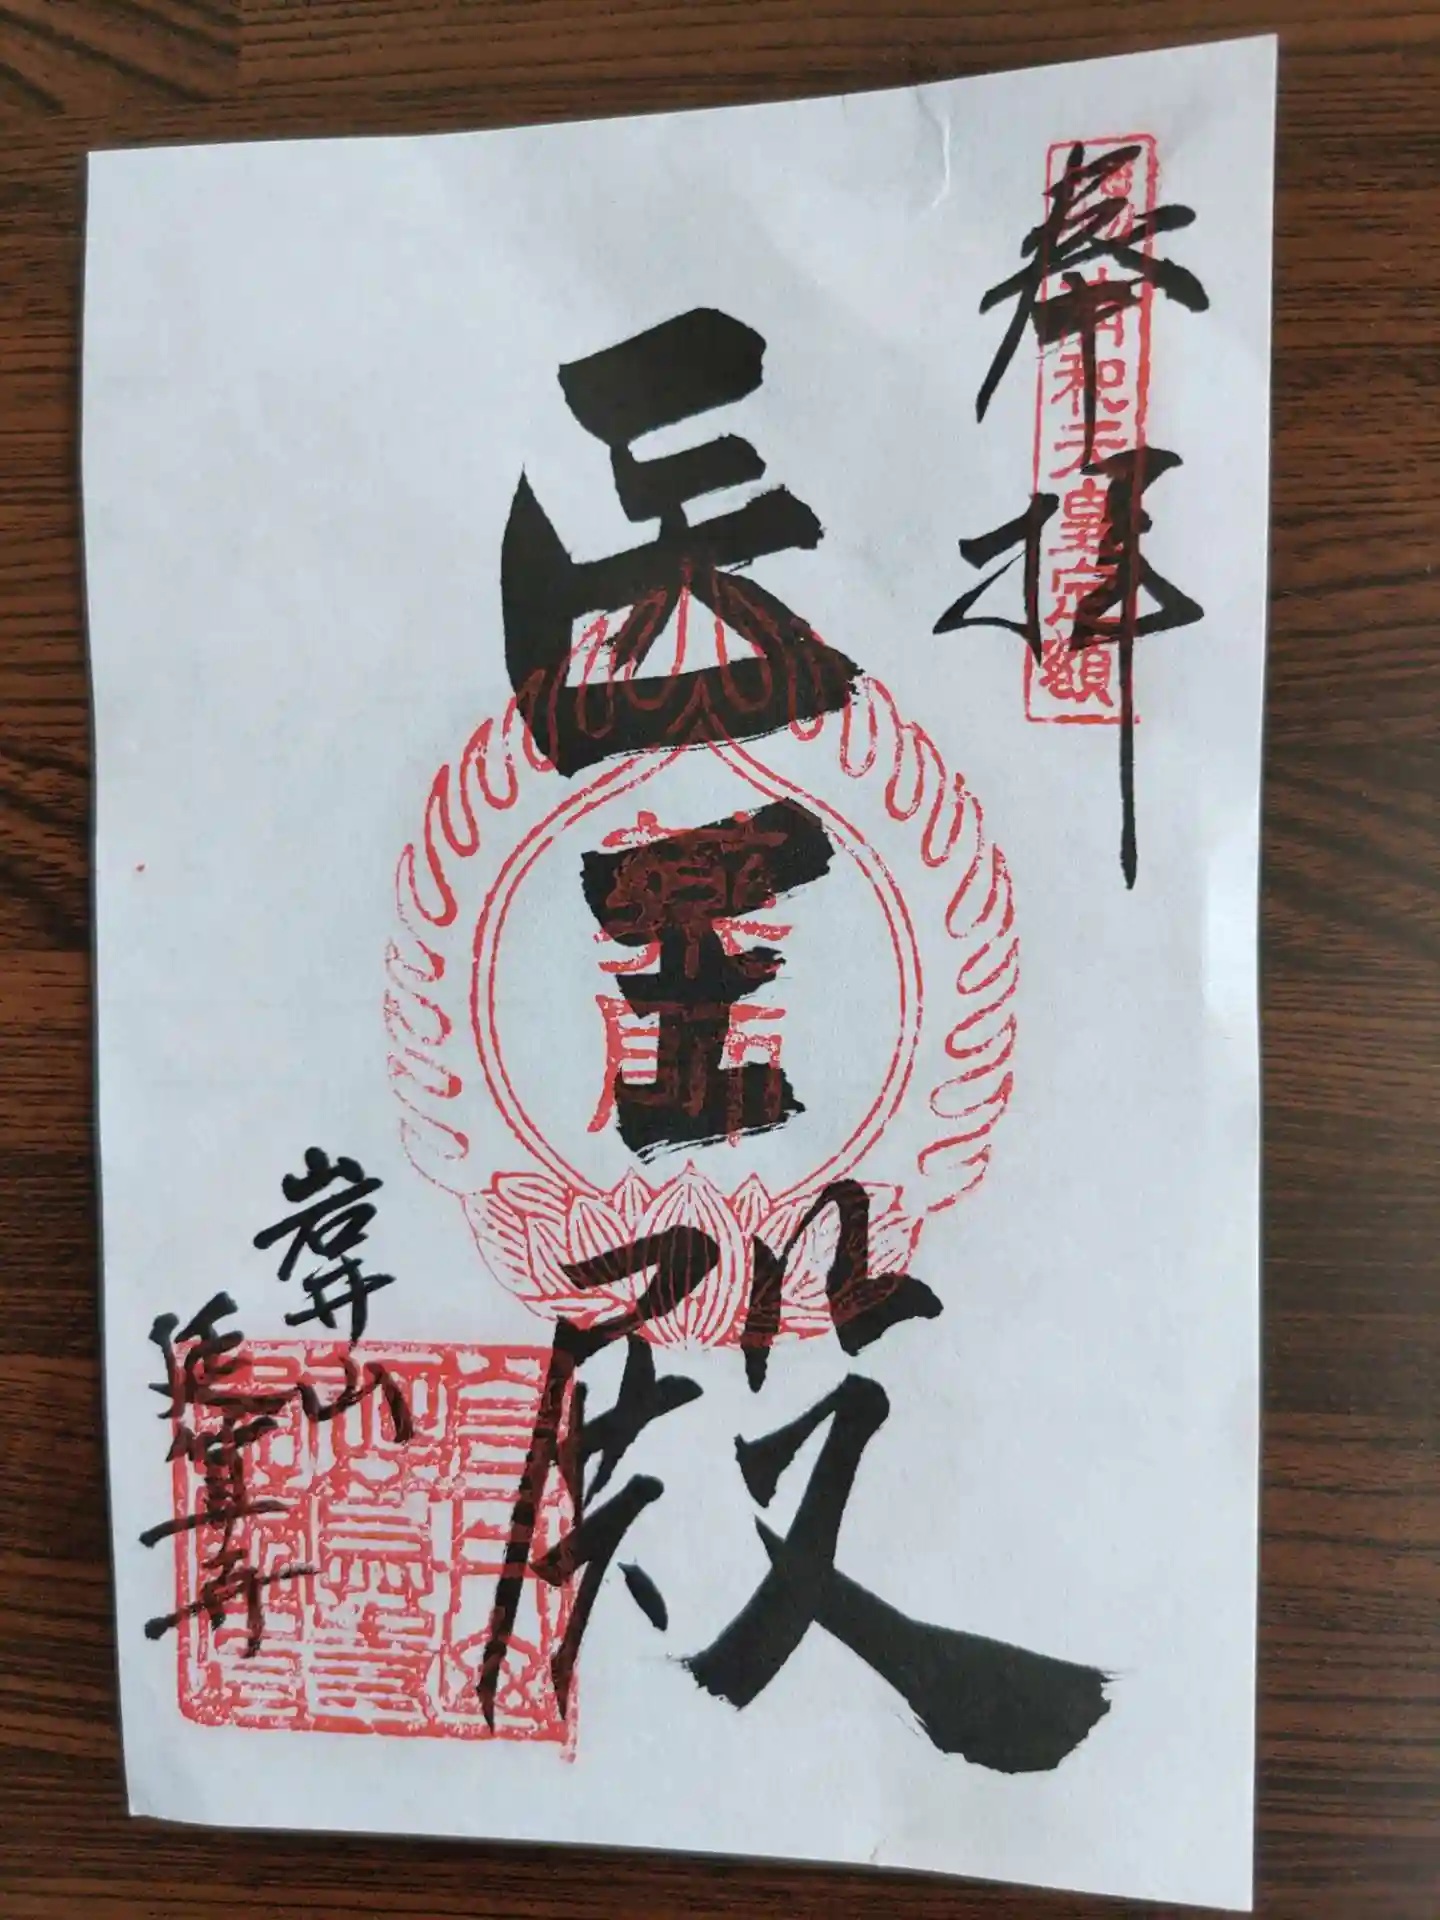 奉拝
清和天皇定額
医王殿
薬師
岩井山
延算寺